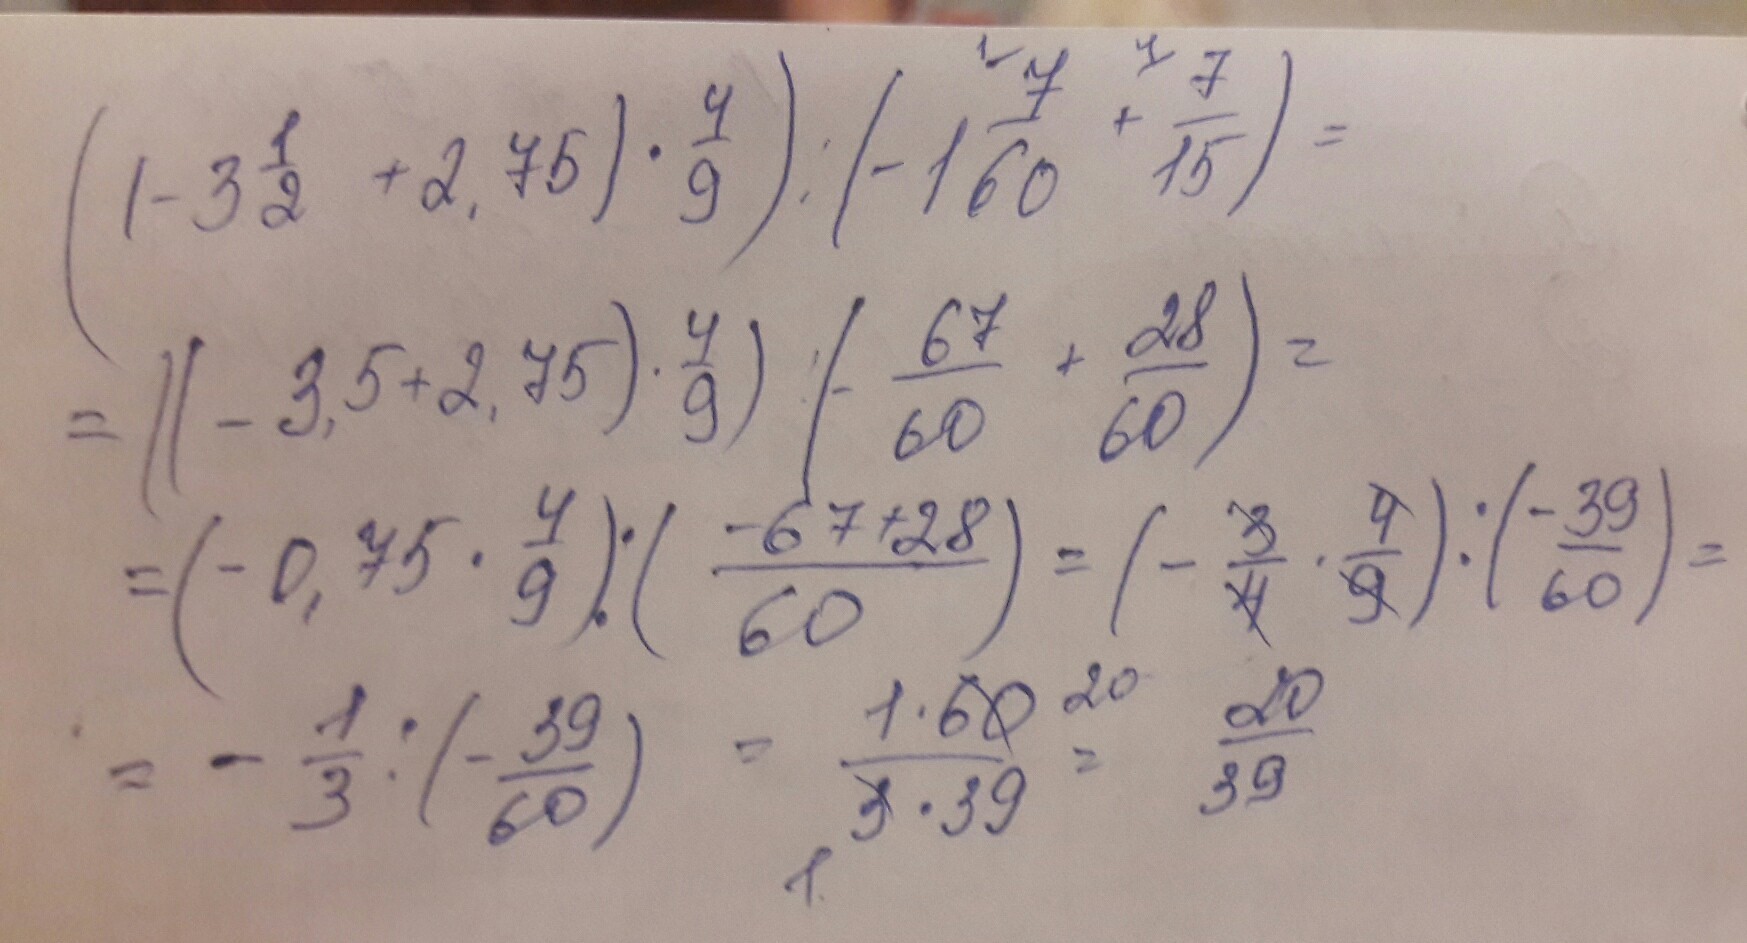 ((-3 1/2 + 2,75) · 4/9) : (-1 7/60 + 7/15) =
= ((-3,5 + 2,75) · 4/9) : (- 67/60 + 28/60) =
= (-0,75 · 4/9) : ((-67+28)/60) = (- 3/4 · 4/9) : (-39/60) =
= - 1/3 : (- 39/60) = (1·60)/(3·39) 20 = 20/39
1